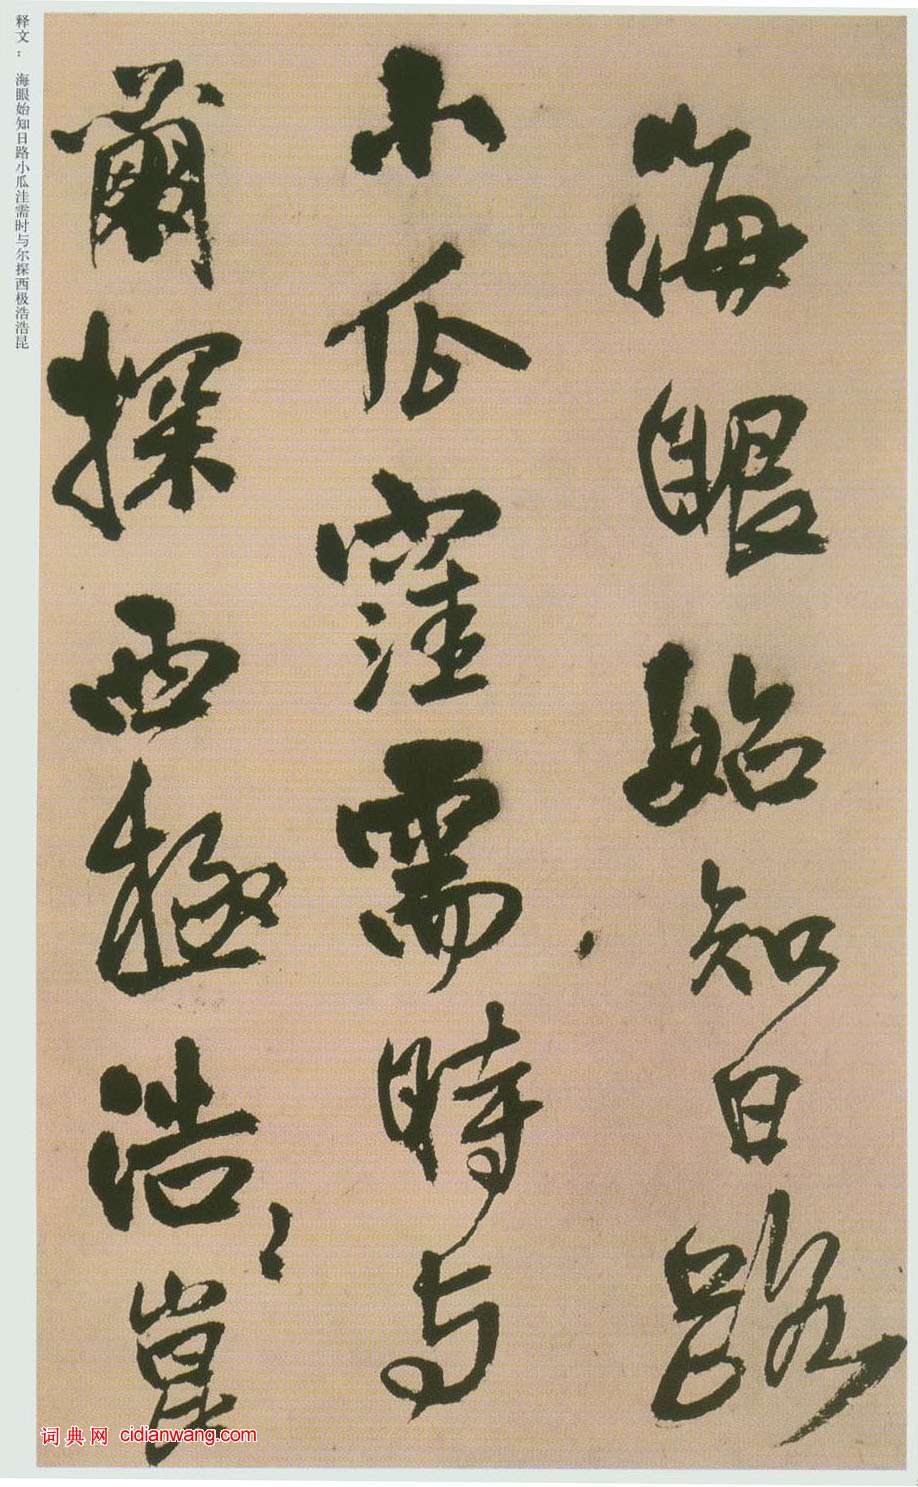 海眼始知日路
小瓜窪需時与
爾探西極浩〻崑
释文： 海眼始知日路小瓜洼需时与尔探西极浩浩昆
词典网 cidianwang.com